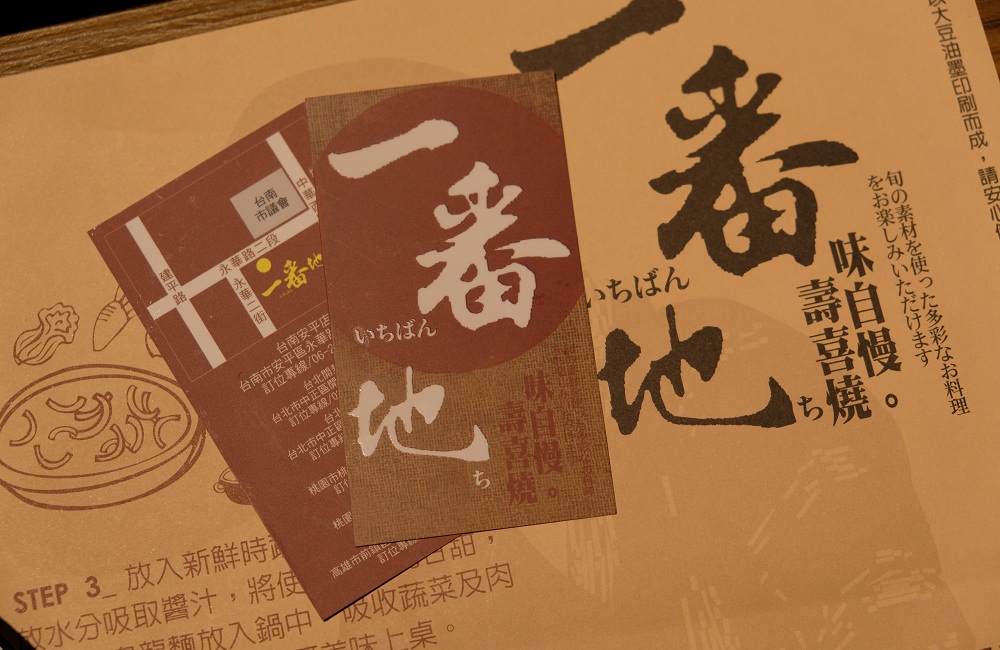 一番地
いちばん
ち
味自慢。
壽喜燒
旬の素材を使った多彩なお料理
をお楽しみいただけます
大豆油墨印刷而成，請安心使
一番地
いちばん
ち
味自慢。
壽喜燒
台南
市議會
中華
永華路二段
建平路
永華二街
一番地
台南安平店
台南市安平區永華
訂位專線/06-2
台北市中正區
訂位專線/0
台北市中正
訂位專
桃園市
訂
桃園
高雄市前鎮
訂位專
STEP 3_ 放入新鮮時
甜，
放水分吸取醬汁，將使
烏龍麵放入鍋中
吸收蔬菜及肉
美味上桌。